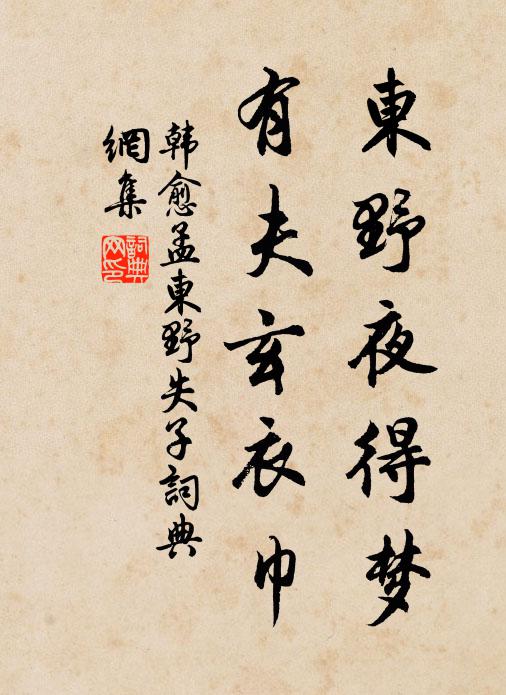 東野夜得梦
有夫玄衣巾
韩愈孟東野失子詞典
網集
詞典
网印